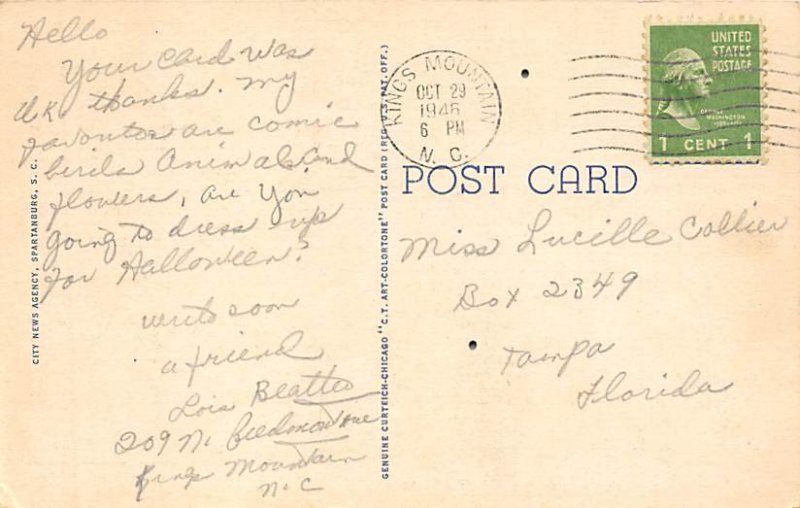 Hello
Your card was
O.K. thanks. My
favorites are comic
birds Animals and
flowers, Are you
going to dress up
for Halloween?
write soon
a friend
Lois Beattie
209 N. Piedmont Ave
Kings Mountain
N.C
CITY NEWS AGENCY, SPARTANBURG, S. C.
GENUINE CURTEICH-CHICAGO "C.T. ART-COLORTONE" POST CARD (REG. U.S. PAT. OFF.)
KINGS MOUNTAIN
OCT 29
1946
6 PM
N. C.
UNITED
STATES
POSTAGE
GEORGE
WASHINGTON
1 CENT 1
POST CARD
Miss Lucille Collier
Box 2349
Tampa
Florida